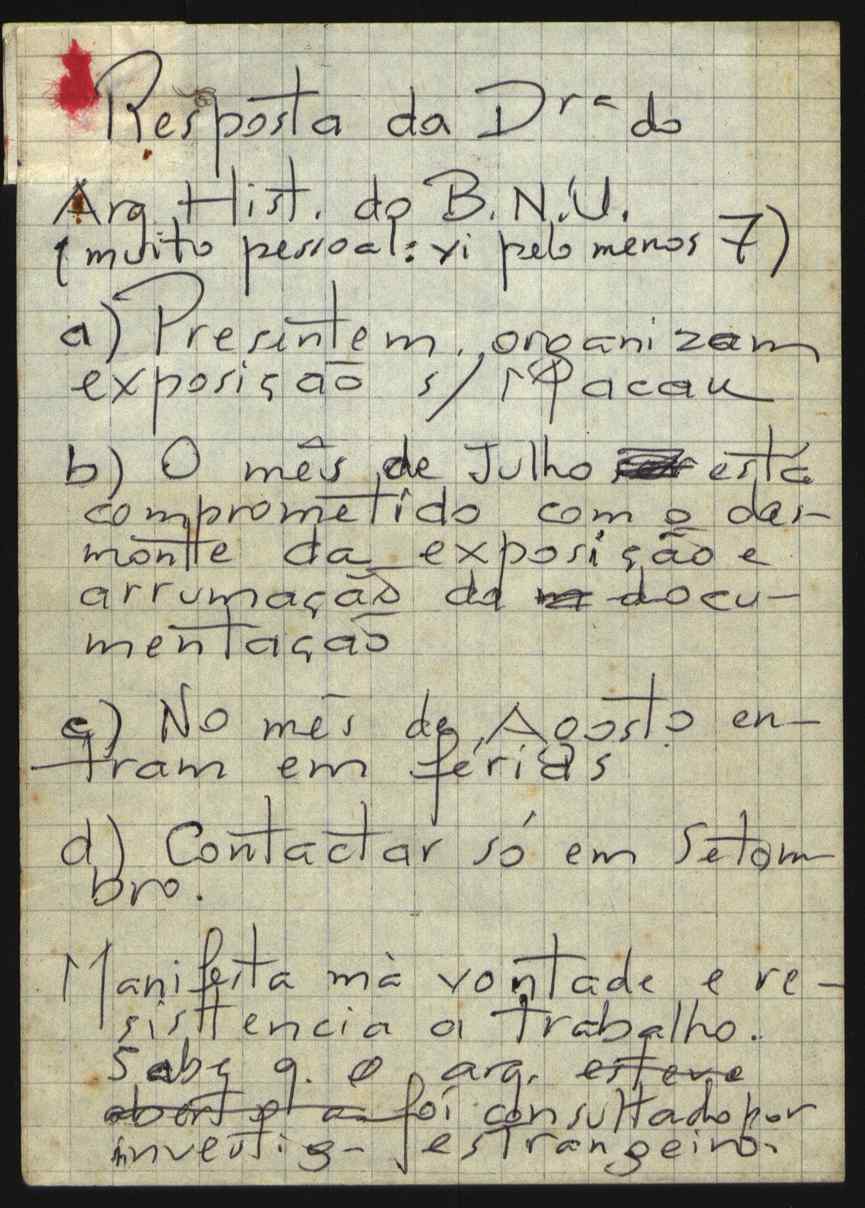 Resposta da Drª do
Arq. Hist. do B.N.U.
(muito pessoal: vi pelo menos 7)
a) Presentem. organizam
exposição s/ Macau
b) O mês de Julho está
comprometido com o des-
monte da exposição e
arrumação da docu-
mentação
c) No mês de Agosto en-
tram em férias
d) Contactar só em Setem
bro.
Manifesta má vontade e re-
sistencia a trabalho.
Sabe q. o arq. esteve
foi consultado por
investig- estrangeiro.